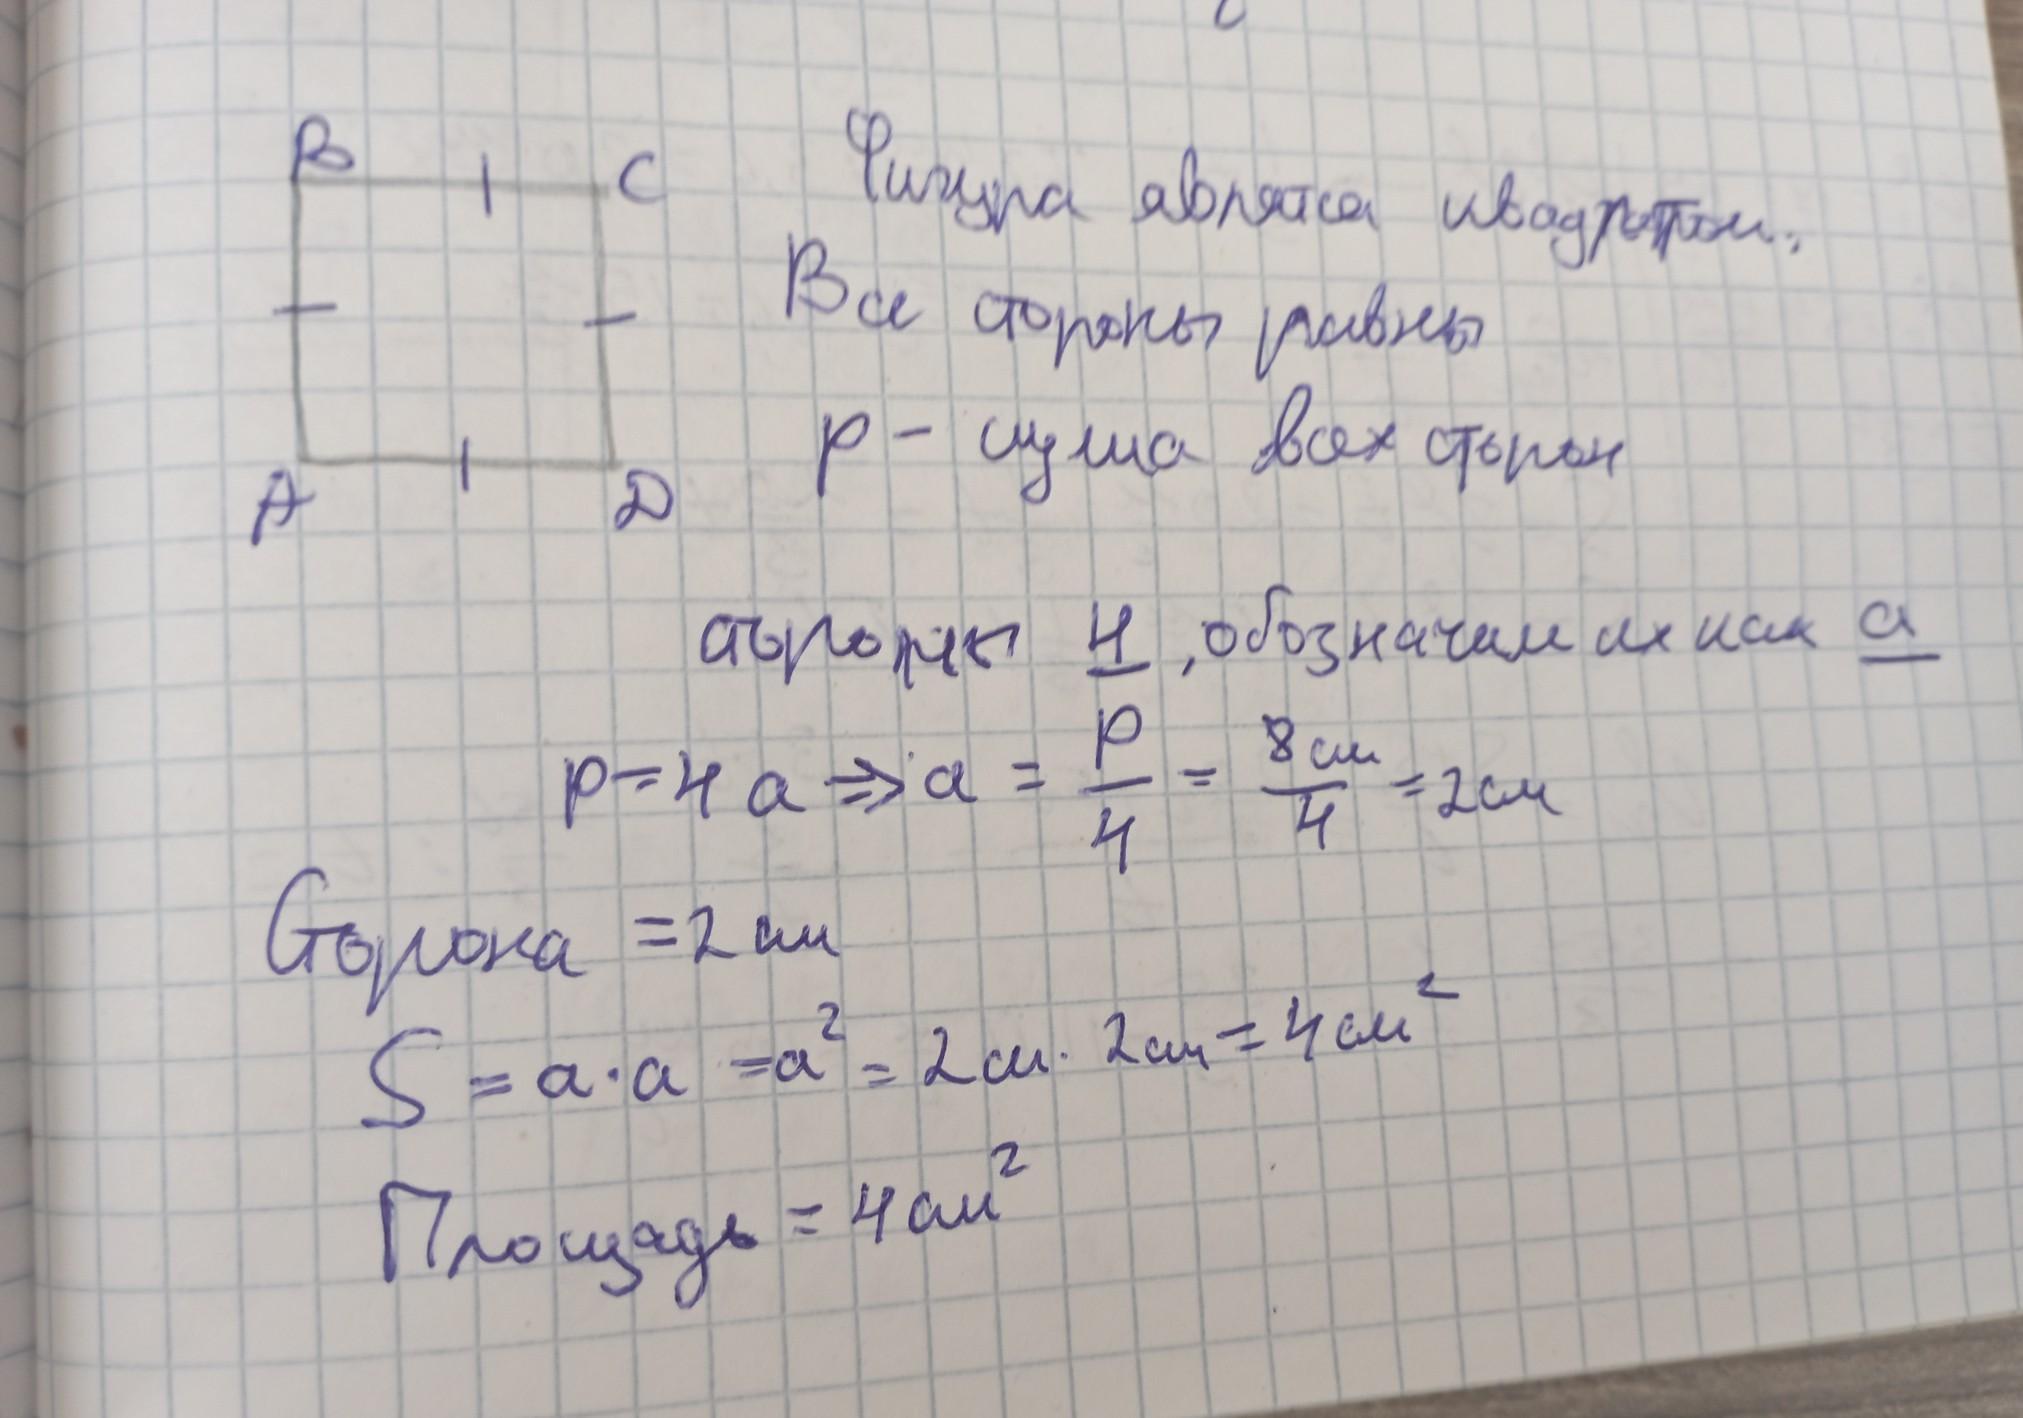 B C
Фигура являтса квадратом.
Все стороны равны
P - сумма всех сторон
A D
стороны 4, обозначим их как a
P = 4a ⇒ a = P/4 = 8см/4 = 2см
Сторона = 2см
S = a·a = a² = 2см · 2см = 4см²
Площадь = 4см²